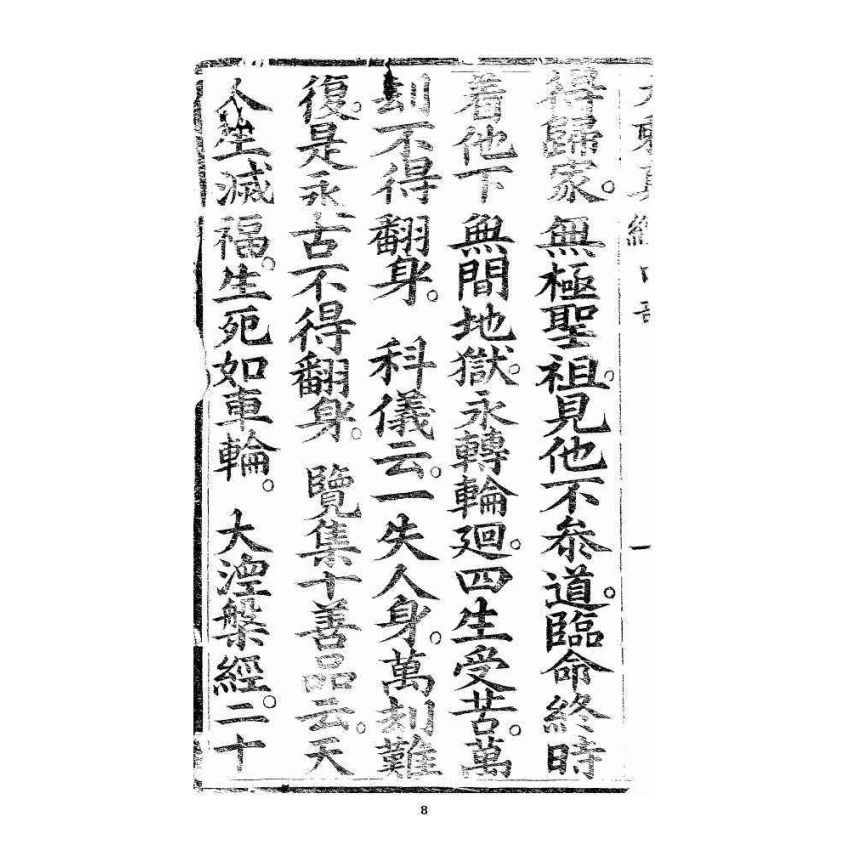 得歸家。無極聖祖。見他不叅道。臨命終時
着他下無間地獄。永轉輪廻。四生受苦。萬
刦不得翻身。科儀云。一失人身。萬刦難
復。是永古不得翻身。覽集十善品云。天
人壍滅福。生死如車輪。大涅槃經。二十
8